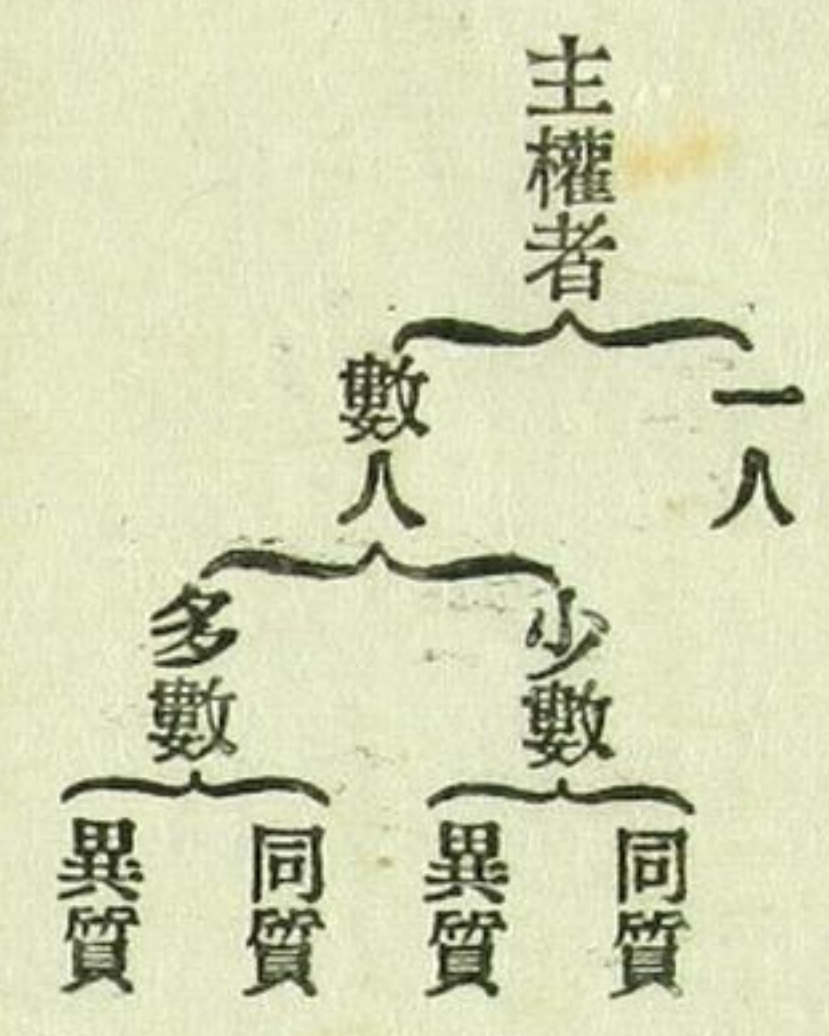 主權者
一人
數人
少數
多數
同質
異質
同質
異質